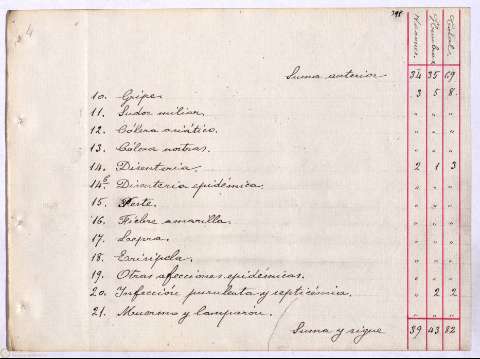 4
Varones Hembras Total
Suma anterior 34 35 69
10. Gripe. 3 5 8
11. Sudor miliar. " " "
12. Cólera asiático. " " "
13. Cólera nostras. " " "
14. Disentería. 2 1 3
14b Disentería epidémica. " " "
15. Peste. " " "
16. Fiebre amarilla. " " "
17. Lepra. " " "
18. Erisipela. " " "
19. Otras afecciones epidémicas. " " "
20. Infección purulenta y septicémia. " 2 2
21. Muermo y lamparón. " " "
Suma y sigue 39 43 82